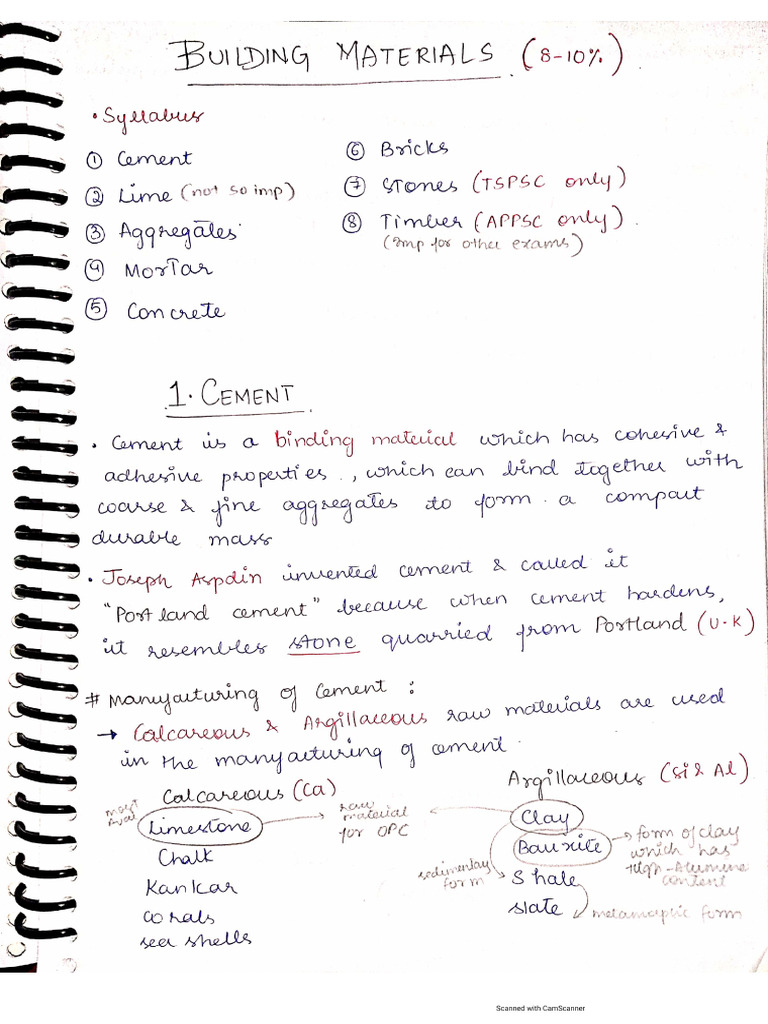 BUILDING MATERIALS (8-10%)
• Syllabus
① Cement
② Lime (not so imp)
③ Aggregates
④ Mortar
⑤ Concrete
⑥ Bricks
⑦ Stones (TSPSC only)
⑧ Timber (APPSC only)
(Imp for other exams)
1. CEMENT
• Cement is a binding material which has cohesive &
adhesive properties, which can bind together with
coarse & fine aggregates to form a compact
durable mass
• Joseph Aspdin invented cement & called it
"Portland cement" because when cement hardens,
it resembles stone quarried from Portland (U.K)
# Manufacturing of Cement :
→ Calcareous & Argillaceous raw materials are used
in the manufacturing of cement.
Calcareous (Ca)
most
Limestone
Chalk
Kankar
corals
sea shells
raw
material
for OPC
Argillaceous (Si & Al)
Clay
Bauxite
Shale
Slate
sedimentary
form
form of clay
which has
High-Alumina
content
metamorphic form
Scanned with CamScanner